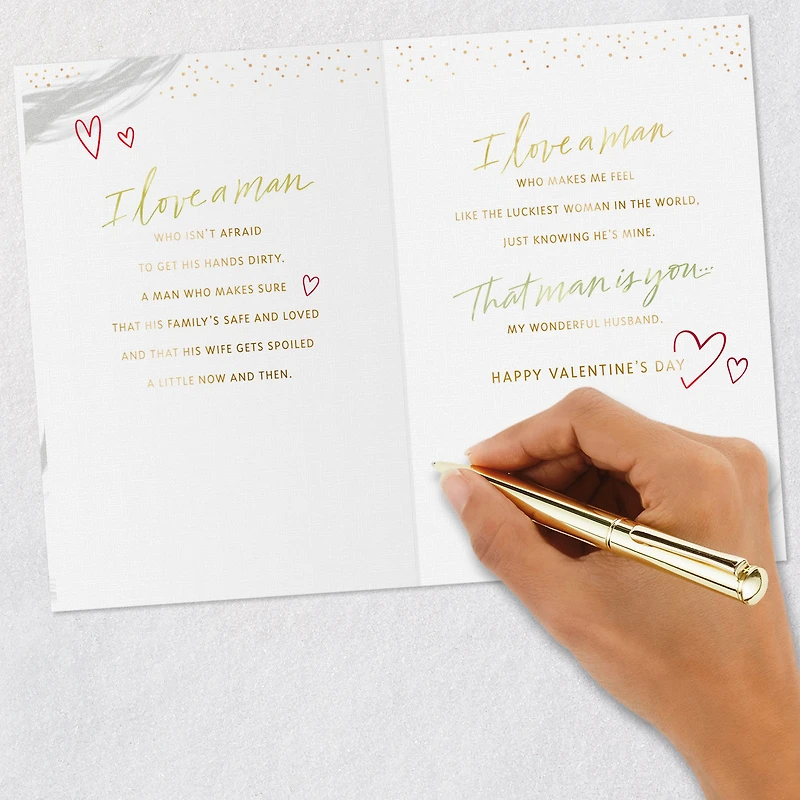 I love a man
WHO ISN'T AFRAID
TO GET HIS HANDS DIRTY.
A MAN WHO MAKES SURE
THAT HIS FAMILY'S SAFE AND LOVED
AND THAT HIS WIFE GETS SPOILED
A LITTLE NOW AND THEN.
I love a man
WHO MAKES ME FEEL
LIKE THE LUCKIEST WOMAN IN THE WORLD,
JUST KNOWING HE'S MINE.
That man is you...
MY WONDERFUL HUSBAND.
HAPPY VALENTINE'S DAY